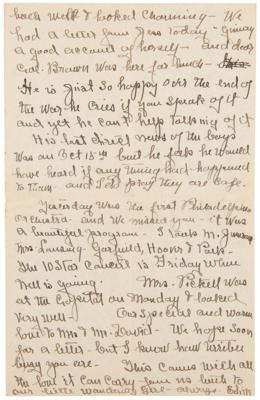 back well & looked charming - We
had a letter from Jess today - giving
a good account of herself - and dear
Col. Brown was here for lunch -
He is just so happy over the end of
the war he cries if you speak of it
and yet he can't help talking of it
His last direct news of the boys
was on Oct 15th but he feels he would
have heard if anything had happened
to them - and I do pray they are safe.
Yesterday was the first Philadelphia
Orchestra - and we missed you - it was
a beautiful program - I took
Mrs Lansing, Garfield, Hoover &
The 10 Star Concert is Friday when
Nell is going. Mrs. Pickett was
at the Capitol on Monday & looked
very well - Our special and warm
love to Mr & Mr. David - We hope soon
for a letter - but I know how terribly
busy you are - This comes with all
the love it can carry from us both to
our little wandering girl - always. Edith